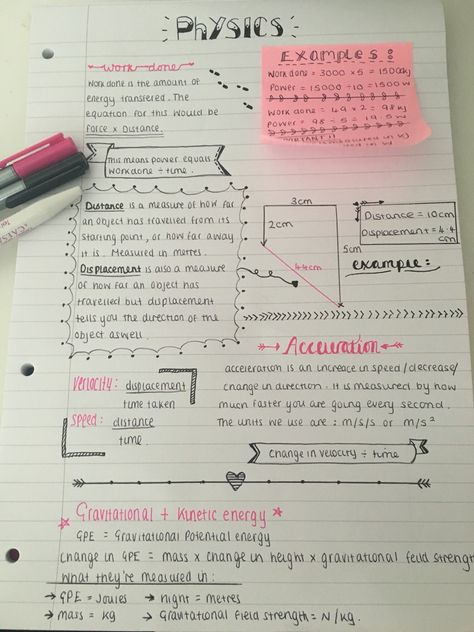 PHYSICS
work done
Work done is the amount of
energy transfered. The
equation for this would be
Force x Distance.
Examples:
Work done = 3000 x 5 = 1500kj
Power = 15000 ÷ 10 = 1500w
Work done = 49 x 2 = 98kj
Power = 98 ÷ 5 = 19.5w
This means power equals
work done ÷ time.
Distance is a measure of how far
an object has travelled from its
starting point, or how far away
it is. Measured in metres.
Displacement is also a measure
of how far an object has
travelled but displacement
tells you the direction of the
object aswell.
3cm
2cm
4.4cm
5cm
Distance = 10cm
Displacement = 4.4
cm
example:
Acceleration
Velocity: displacement
time taken
Speed: distance
time.
acceleration is an increase in speed/decrease/
change in direction. it is measured by how
much faster you are going every second.
The units we use are: m/s/s or m/s²
change in velocity ÷ time
Gravitational + Kinetic energy
GPE = Gravitational Potential energy
change in GPE = mass x change in height x gravitational feild strength
What they're measured in:
→ GPE = Joules → hight = metres
→ mass = kg → Gravitational Field strength = N/kg.